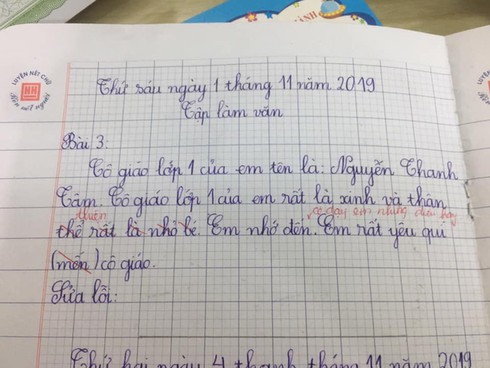 LUYỆN NÉT CHỮ
Rèn nết người
Thứ sáu ngày 1 tháng 11 năm 2019
Tập làm văn
Bài 3.
Cô giáo lớp 1 của em tên là: Nguyễn Thanh
Tâm. Cô giáo lớp 1 của em rất là xinh và thân
cô dạy em những điều hay
thể rất là nhỏ bé. Em nhớ đến. Em rất yêu quí
(mến) cô giáo.
Sửa lỗi:
Thứ hai ngày 4 thanh tháng 11 năm 2019